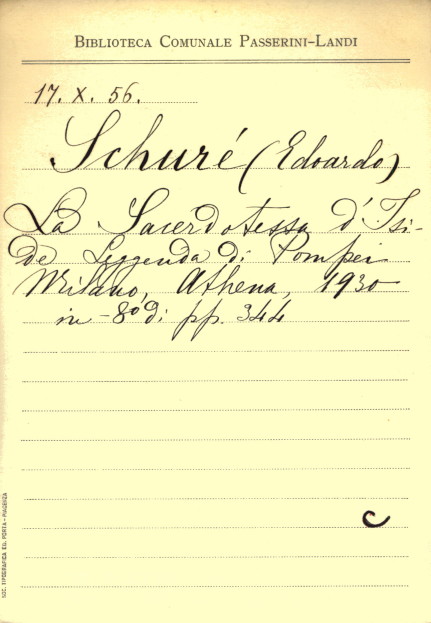 BIBLIOTECA COMUNALE PASSERINI-LANDI
17. X. 56.
Schuré (Edoardo)
La Sacerdotessa d'Isi-
de Leggenda di Pompei
Milano, Athena, 1930
in-8º di pp. 344
C
SOC. TIPOGRAFICA ED. PORTA - PIACENZA